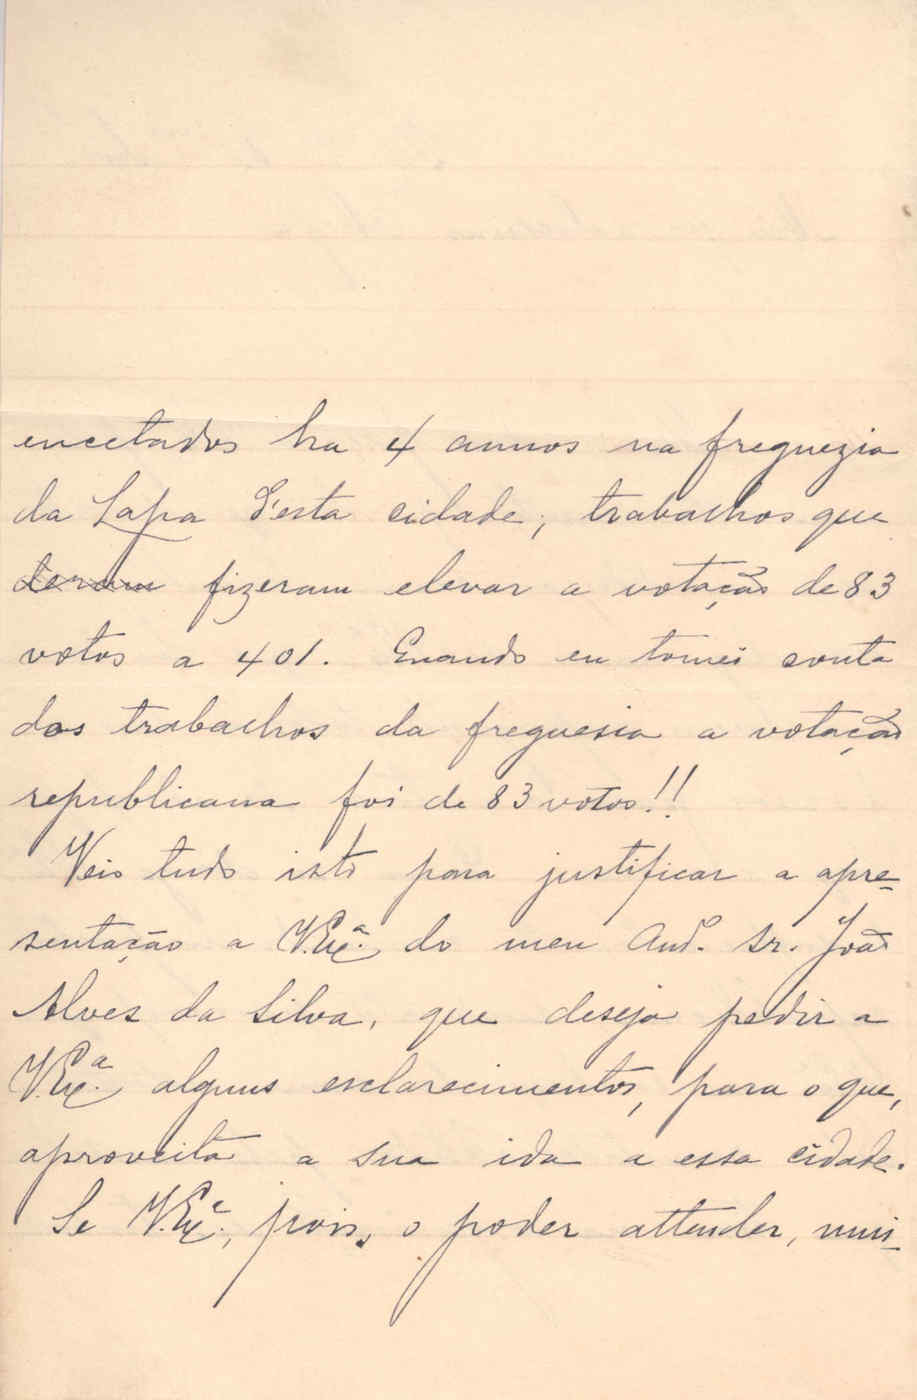 encetados ha 4 annos na freguezia
da Lapa d'esta cidade; trabalhos que
deram fizeram elevar a votação de 83
votos a 401. Quando eu tomei conta
dos trabalhos da freguesia a votação
republicana foi de 83 votos!!
Veio tudo isto para justificar a apre-
sentação a V.Exª. do meu Amº. Sr. João
Alves da Silva, que deseja pedir a
V.Exª. alguns esclarecimentos, para o que,
aproveita a sua ida a essa cidade.
Se V.Exª., pois, o poder attender, mui-